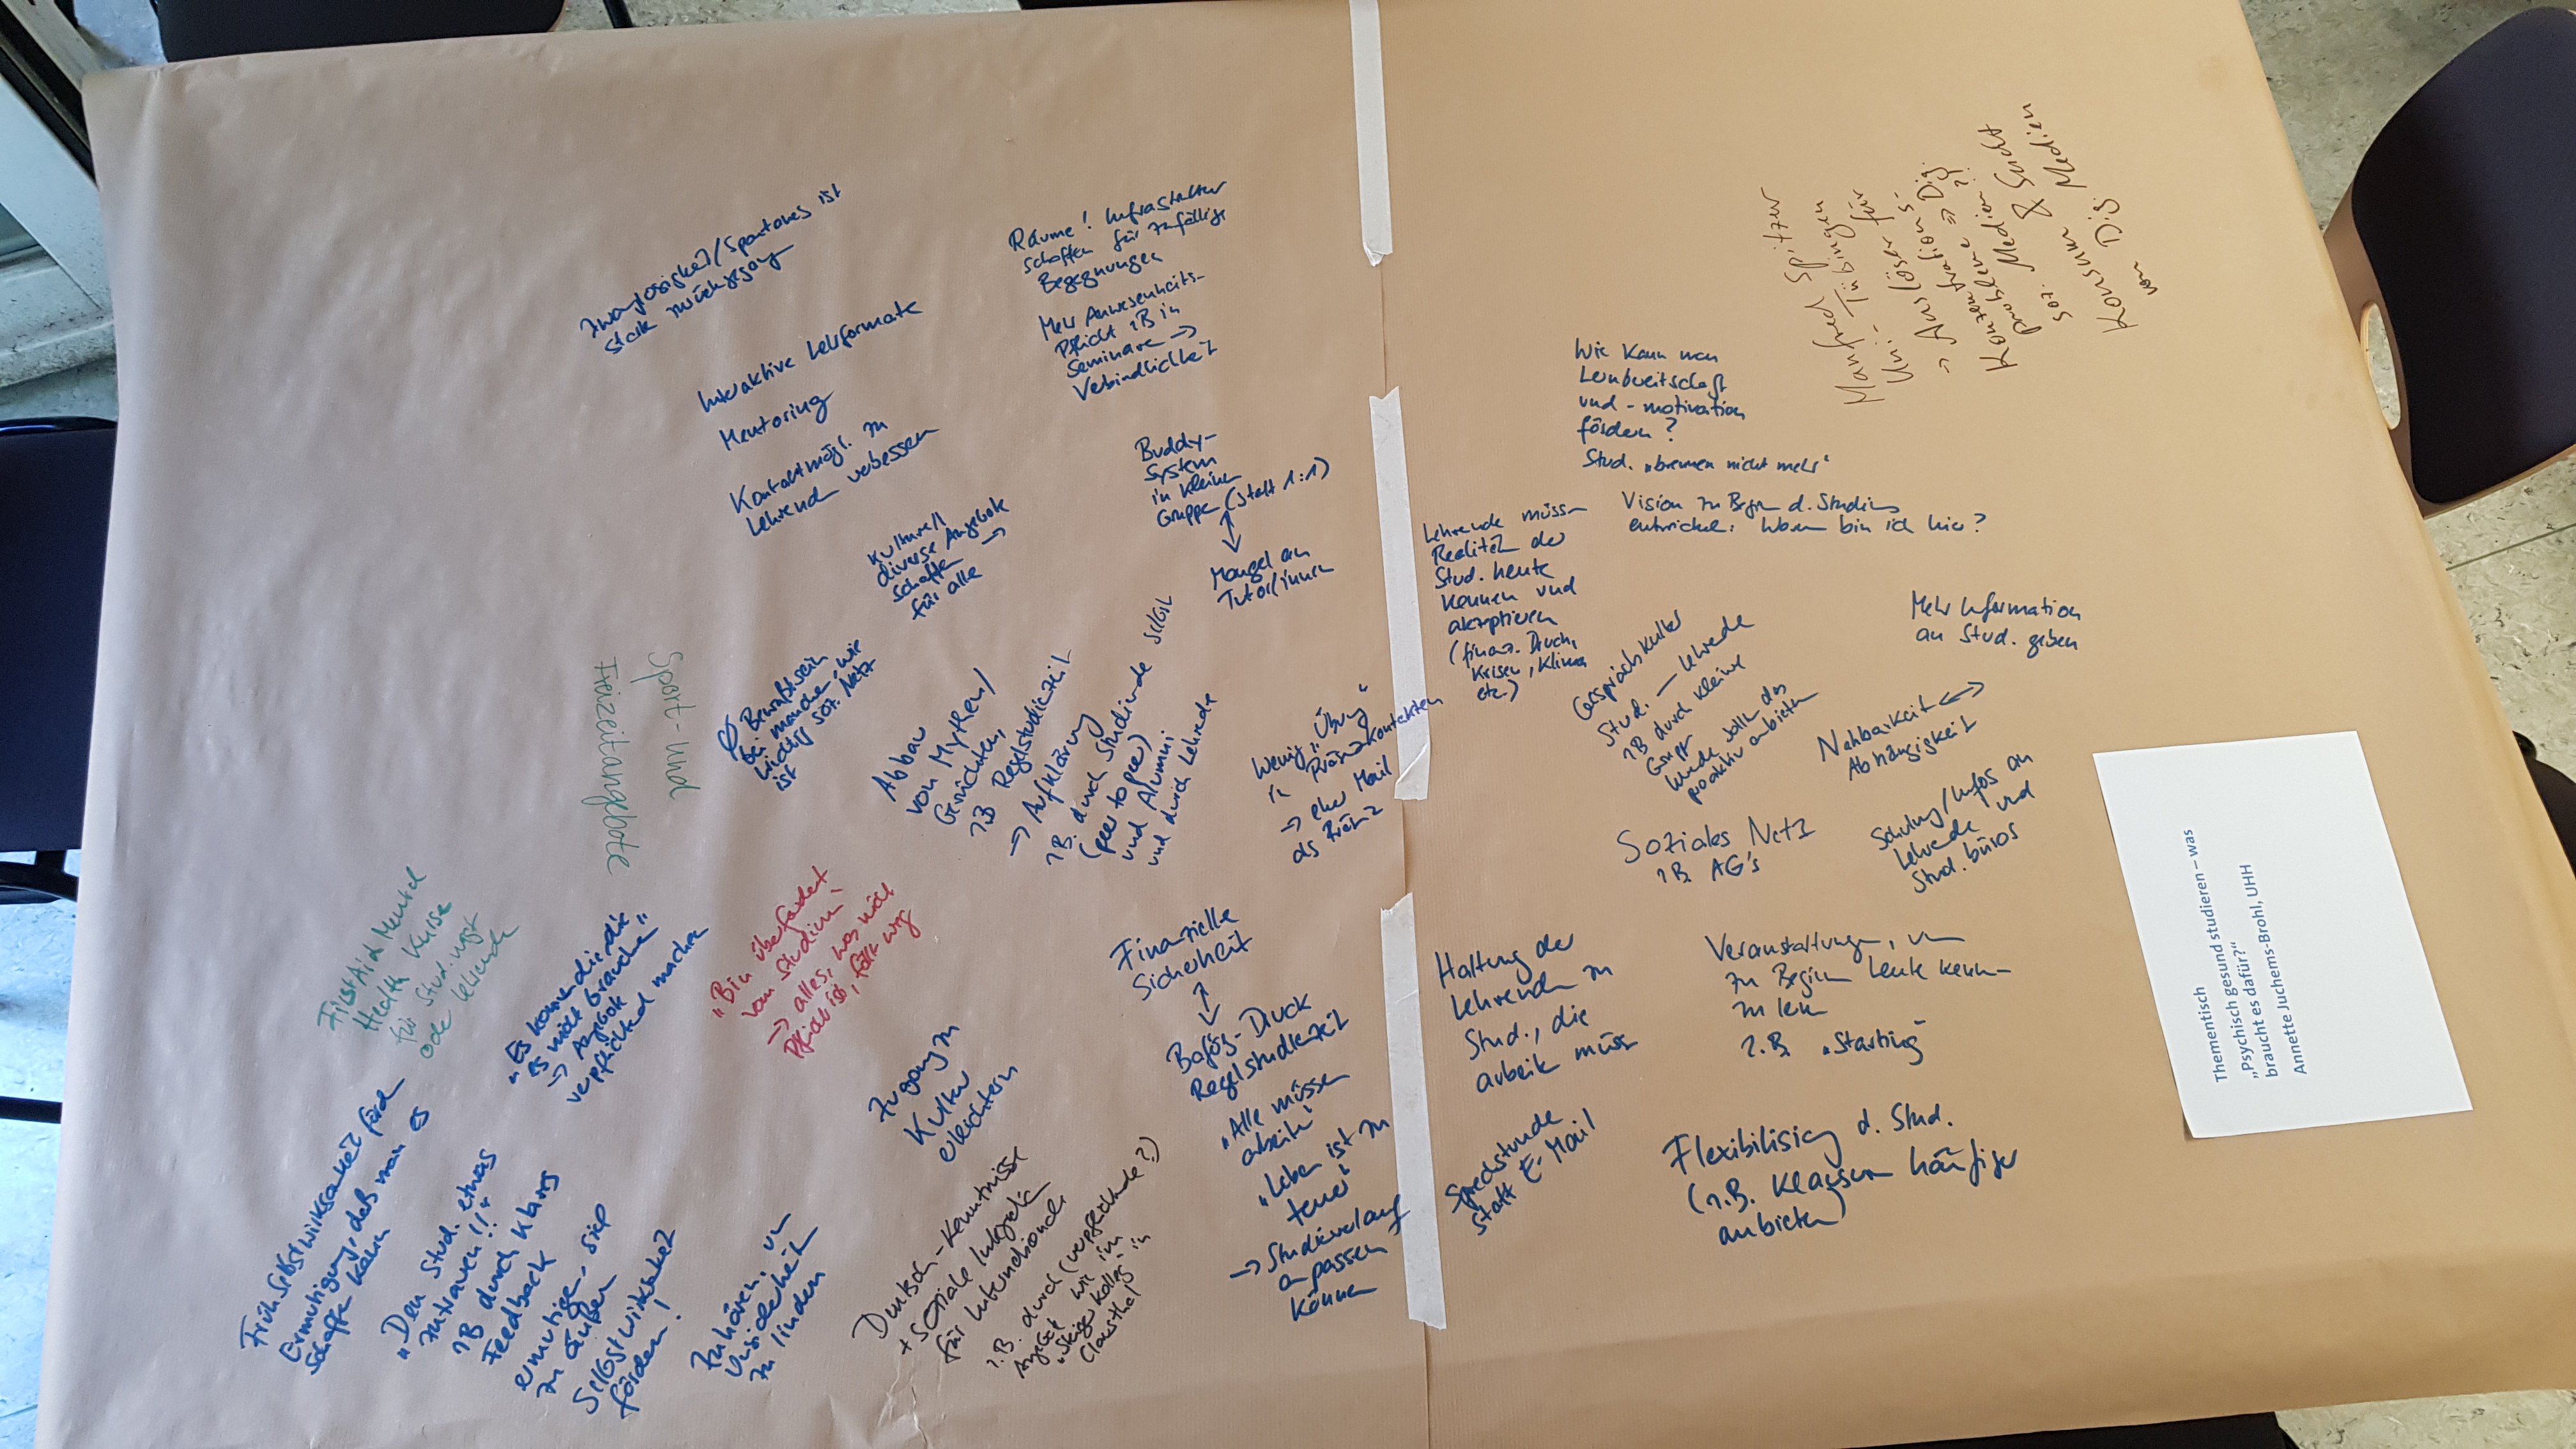 Zwanglosigkeit/Spontanes ist
stark zurückgegang
Räume! Infrastruktur
schaffen für zufällige
Begegnungen
Mehr Anwesenheits-
Pflicht zB in
Seminare →
Verbindlichkeit
Interaktive Lehrformate
Mentoring
Kontaktmögl. zu
Lehrend verbessern
Kulturell
diverse Angebote
schaffen →
für alle
Buddy-
System
in kleinen
Gruppen (statt 1:1)
↕
Mangel an
Tutor/innen
Sport- und
Freizeitangebote
∅ Bewußtsein
bei manchen, wie
wichtig soz. Netz
ist
Abbau
von Mythen/
Gerüchten,
zB Regelstudienzeit
→ Aufklärung
z.B. durch Studierende selbst
(peer to peer)
und Alumni
und durch Lehrende
Wenig „Übung"
in Präsenzkontakten
→ eher Mail
als Präsenz
First Aid Mental
Health Kurse
für Stud.
oder Lehrende
„Es kommen die, die
es nicht brauchen"
→ Angebote
verpflichtend machen
„Bin überfordert
vom Studium"
→ alles, was nicht
Pflicht ist, fällt weg
Finanzielle
Sicherheit
↕
Bafög-Druck
Regelstudienzeit
„Alle müssen
arbeiten"
„Leben ist zu
teuer"
→ Studienverlauf
anpassen
können
Zugang zu
Kultur
erleichtern
Früh Selbstwirksamkeit förd
Ermutigung, daß man es
schaffen kann
„Den Stud. etwas
zutrauen!!"
zB durch klares
Feedback
ermutigen, sich
zu äußern
Selbstwirksamkeit
fördern!
Zuhören, um
Unsicherheit
zu lindern
Deutsch-Kenntnisse
+ soziale Integrat.
für Internationale
z.B. durch (verpflichtende?)
Angebote wie im
„Steiger Kolleg" in
Clausthal
Manfred Spitzer
Uni-Tübingen
→ Auslöser für
Konzentrations-
probleme ⇒ Dig.
Medien?!
soz. Medien & Sucht
Konsum
von Dig. Medien
Wie kann man
Lernbereitschaft
und -motivation
fördern?
Stud. „brennen nicht mehr"
Vision zu Beginn d. Studiums
entwickeln: Warum bin ich hier?
Lehrende müssen
Realität der
Stud. heute
kennen und
akzeptieren
(finanz. Druck,
Krisen, Klima
etc.)
Gesprächskultur
Stud. — Lehrende
zB durch kleine
Gruppen
Lehrende sollen das
proaktiv anbieten
Mehr Information
an Stud. geben
Nahbarkeit ↔
Abhängigkeit
Soziales Netz
z.B. AG's
Schulung/Infos an
Lehrende und
Stud.büros
Haltung der
Lehrenden zu
Stud., die
arbeiten müssen
Veranstaltungen, um
zu Beginn Leute kenn-
zu lernen
z.B. „Starting"
Sprechstunde
statt E-Mail
Flexibilisierung d. Stud.
(z.B. Klausuren häufiger
anbieten)
Thementisch
„Psychisch gesund studieren – was
braucht es dafür?"
Annette Juchems-Brohl, UHH